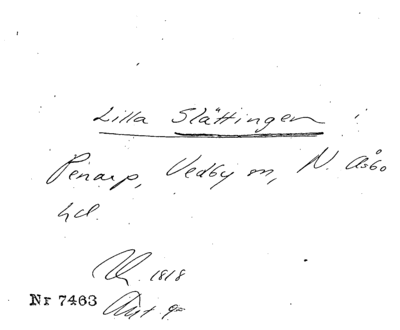 Lilla Slättingen i
Pinarp, Vedby sn, N. Åsbo
hd.
1818
Nr 7463